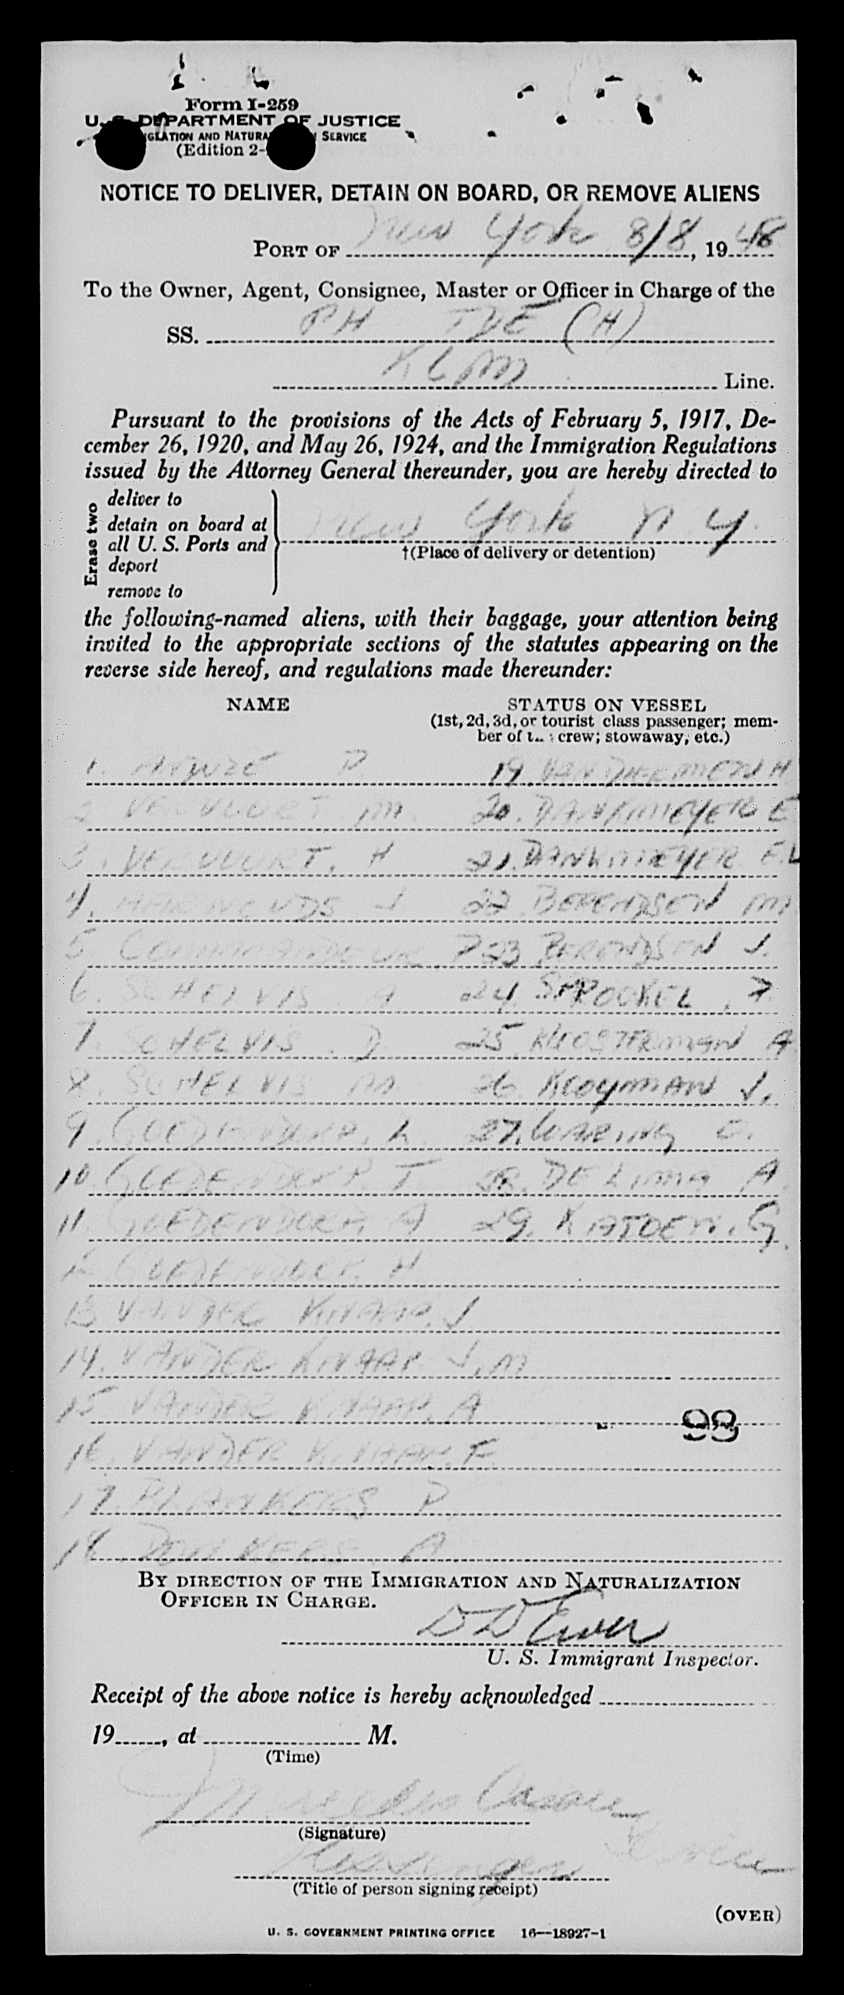 Form I-259
U. S. DEPARTMENT OF JUSTICE
AND SERVICE
(Edition 2-
NOTICE TO DELIVER, DETAIN ON BOARD, OR REMOVE ALIENS
PORT OF New York 8/8, 1948
To the Owner, Agent, Consignee, Master or Officer in Charge of the
SS. PH TDE (H)
KLM Line.
Pursuant to the provisions of the Acts of February 5, 1917, De-
cember 26, 1920, and May 26, 1924, and the Immigration Regulations
issued by the Attorney General thereunder, you are hereby directed to
Erase two
deliver to
detain on board at
all U. S. Ports and
deport
remove to
New York N.Y.
†(Place of delivery or detention)
the following-named aliens, with their baggage, your attention being
invited to the appropriate sections of the statutes appearing on the
reverse side hereof, and regulations made thereunder:
NAME STATUS ON VESSEL
(1st, 2d, 3d, or tourist class passenger; mem-
ber of crew; stowaway, etc.)
1. P 19. H
2. VERVUURT M. 20. DANKMEYER E
3. VERVUURT. H 21. DANKMEYER E.L
4. J 22. BERENDSEN M
5 23 BERENDSEN J.
6. SCHELVIS A 24. SPROCKEL. F.
7. SCHELVIS. D 25. KLOSTERMAN A
8. SCHELVIS M 26. KOOYMAN J.
9. GOEDENDORP. L. 27. WARING C.
10. GOEDENDORP. T 28. DE LIMA A.
11. GOEDENDORP. A 29. G.
12 GOEDENDORP. H
13 VANDER KNAAP. J
14. VANDER KNAAP J. M
15 VANDER KNAAP. A
98
16. VANDER KNAAP. F.
17. PLANKERS P.
18. DONKERS. A.
BY DIRECTION OF THE IMMIGRATION AND NATURALIZATION
OFFICER IN CHARGE.
U. S. Immigrant Inspector.
Receipt of the above notice is hereby acknowledged
19, at M.
(Time)
(Signature)
(Title of person signing receipt)
(OVER)
U. S. GOVERNMENT PRINTING OFFICE 16—18927-1